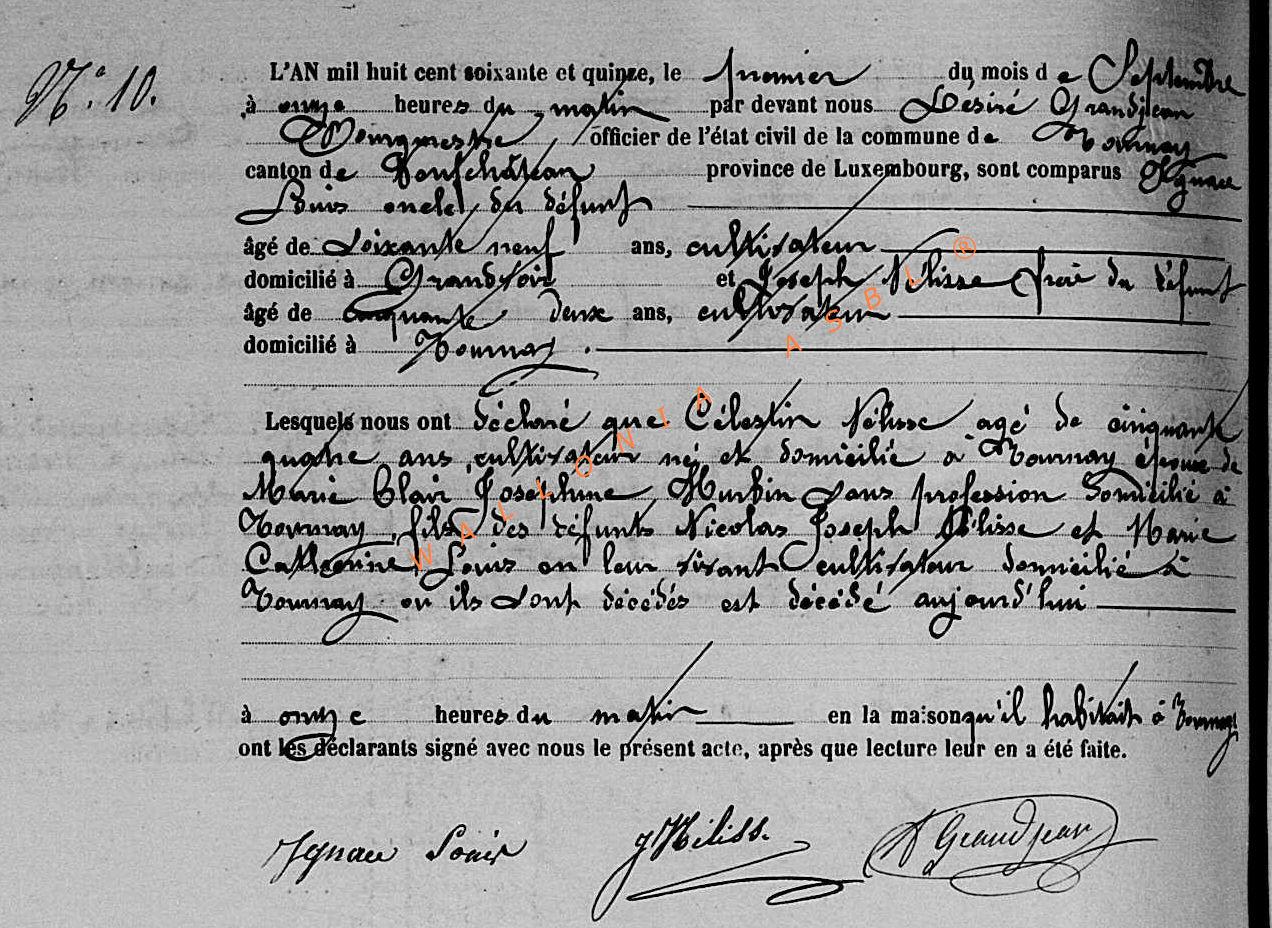 N.° 10.
L'AN mil huit cent soixante et quinze, le premier du mois de Septembre
à onze heures du matin par devant nous Désiré Grandjean
Bourgmestre, officier de l'état civil de la commune de Tournay
canton de Neufchâteau province de Luxembourg, sont comparus Ignace
Louis oncle du défunt
âgé de Soixante neuf ans, cultivateur
domicilié à Grandvoir et Joseph Hélisse frère du défunt
âgé de Cinquante deux ans, cultivateur
domicilié à Tournay.
Lesquels nous ont déclaré que Célestin Hélisse agé de cinquante
quatre ans, cultivateur né et domicilié à Tournay époux de
Marie Clair Josephine Hurbin sans profession domicilié à
Tournay, fils des défunts Nicolas Joseph Hélisse et Marie
Catherine Louis en leur vivant cultivateur domicilié à
Tournay ou ils sont décédés est décédé aujourd'hui
à onze heures du matin en la maison qu'il habitait à Tournay
ont les déclarants signé avec nous le présent acte, après que lecture leur en a été faite.
Ignace Louis J Héliss. D Grandjean
WALLONIA ASBL ®